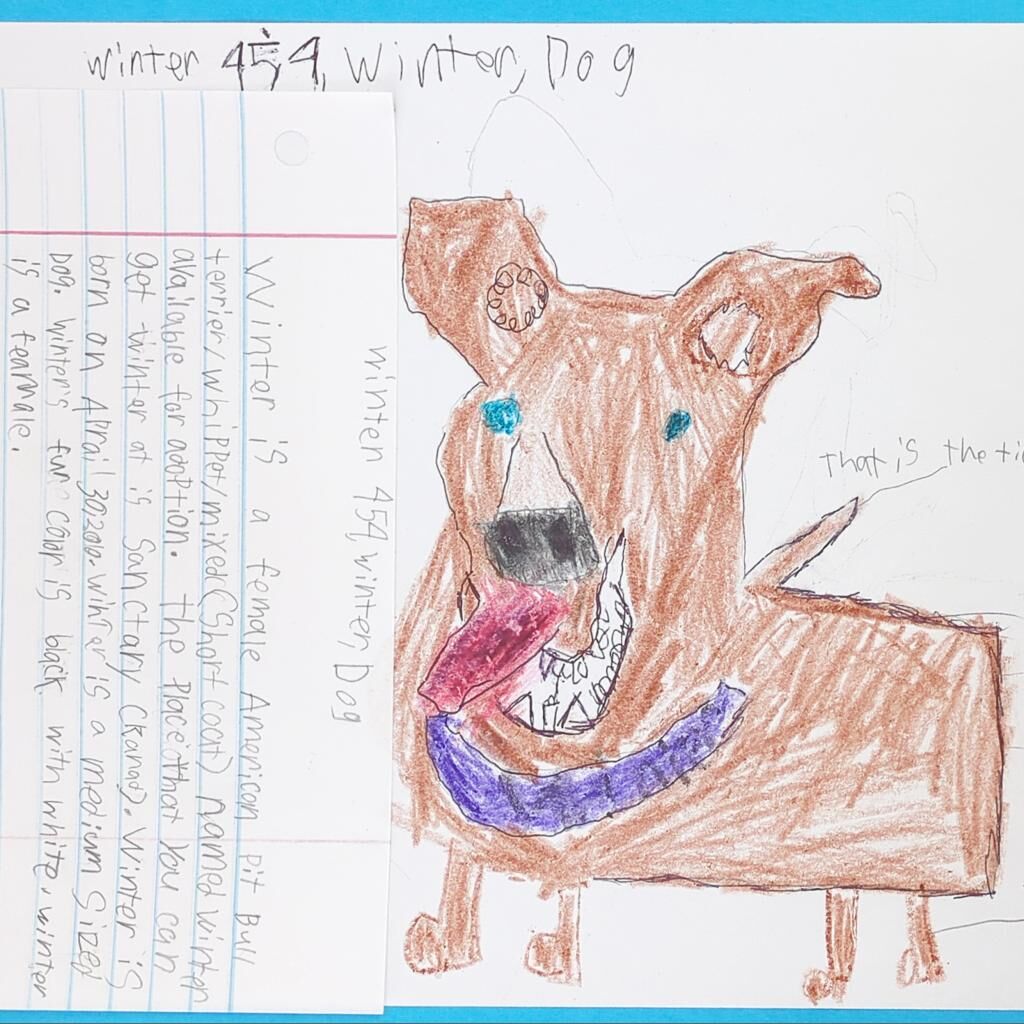 winter 454, Winter, Dog
winter 454, winter, Dog
Winter is a female American pit Bull
terrier/whipper/mixed(Short coat) named winter
available for adoption. the place that you can
get winter at is Sanctary (Kanab). Winter is
born on Alrail 30, 2020. winter is a medium sized
Dog. winter's fur color is black with white. winter
is a feamale.
that is the